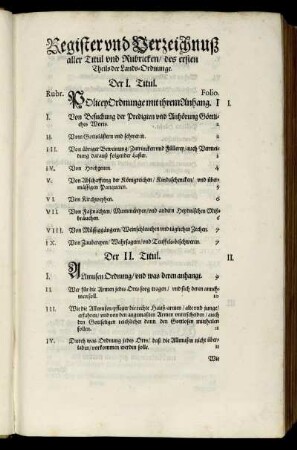 Register vnd Verzeichnuß
aller Titul vnd Rubricken / des ersten
Theils der Lands-Ordnunge.
Der I. Titul.
Rubr. Folio.
POlicey Ordnunge mit ihrem Anhang. I I.
I. Von Besuchung der Predigten vnd Anhörung Göttli-
ches Worts. 2
II. Vom Gottslästern vnd schweren. 2
III. Von übriger Beweinung / Zutrincken vnd Füllerey / auch Vermei-
dung darauß folgender Laster. 3
IV. Von Hochzeiten. 4
V. Von Abschaffung der Königreichen / Kindsschencken / vnd über-
mässigen Pancketen. 5
VI. Von Kirchweyhen. 6
VII. Von Faßnachten / Mummereyen / vnd andern Heydnischen Miß-
bräuchen. 6
VIII. Von Müssiggängern / Weinschläuchen vnd täglichen Zechen. 9
IX. Von Zaubereyen / Wahrsagern / vnd Teuffelsbeschweren. 9
Der II. Titul. II.
I. ALmusen Ordnung / vnd was deren anhangt. 9
II. Wer für die Armen jedes Orts sorg tragen / vnd sich deren anneh-
men soll.
III. Wie die Allmusenpfleger die rechte Hauß-armen / alte vnd junge /
erkennen / vnd von den angemasten Armen vnterscheiden / auch
den Gottseligen reichlicher dann den Gottlosen mittheilen
sollen.
IV. Durch was Ordnung jedes Orts / daß die Allmusen nicht über-
laden / vorkommen werden solle. 11
Wie